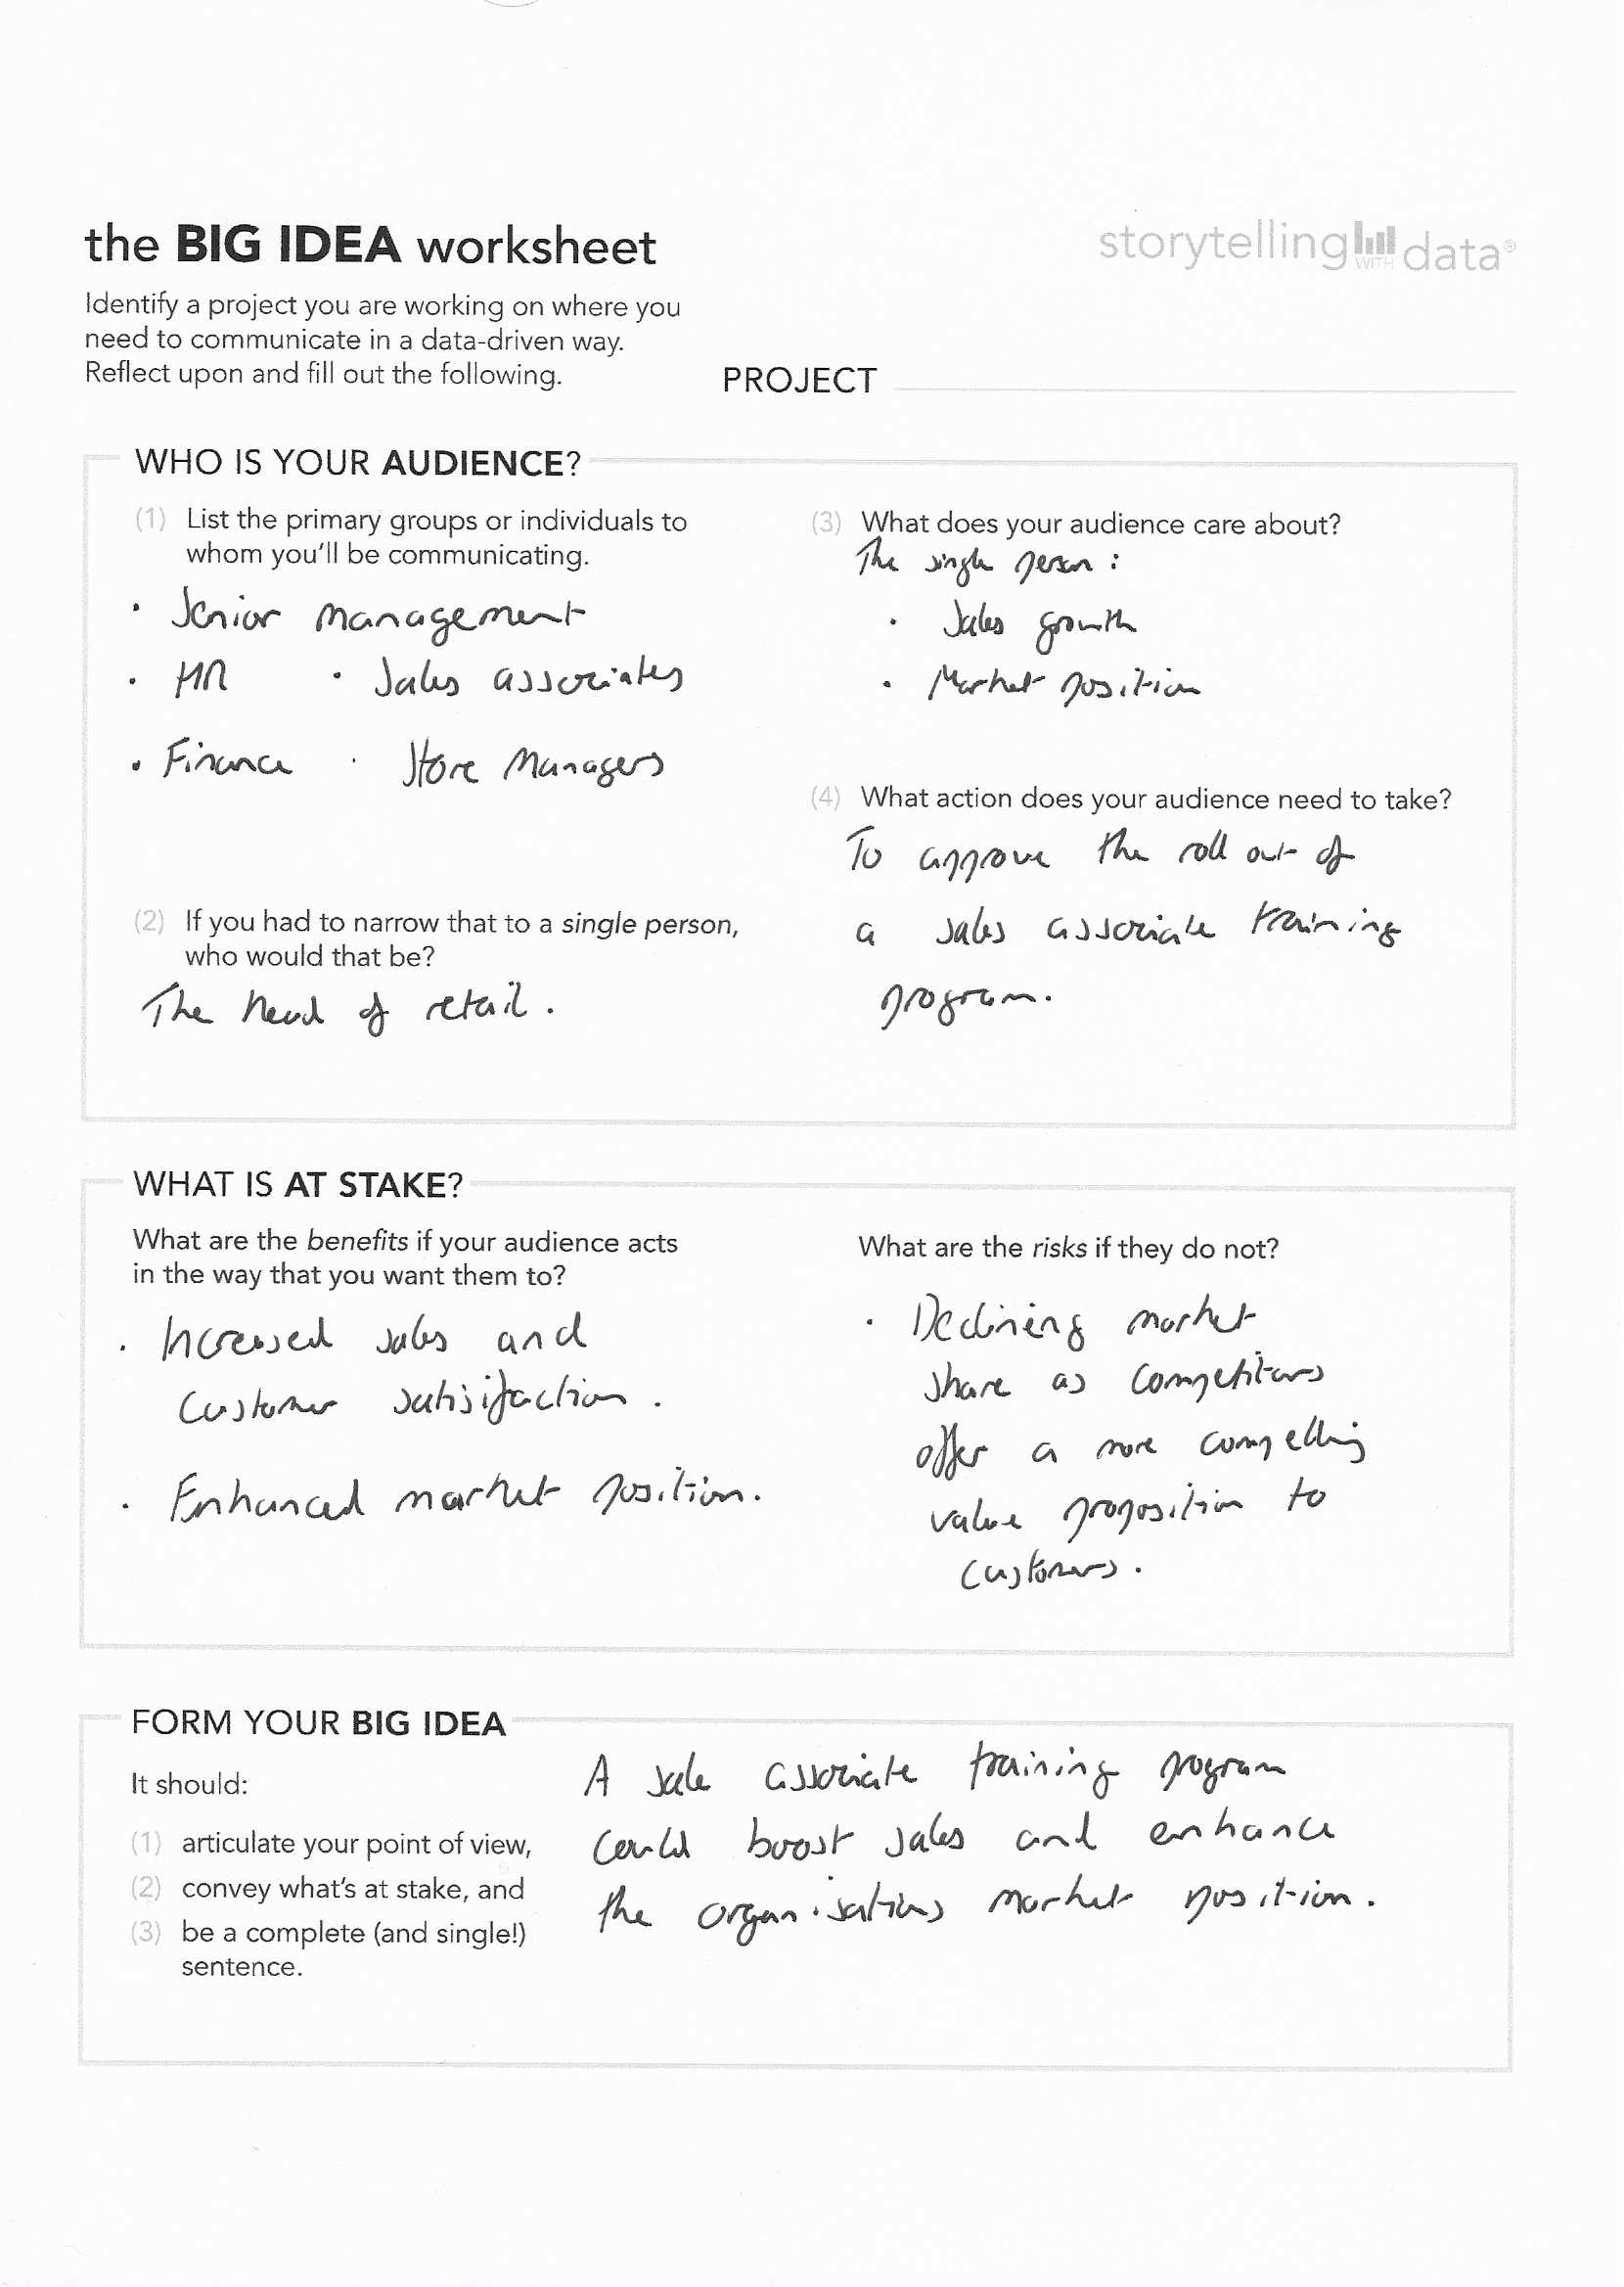 the BIG IDEA worksheet
storytelling WITH data®
Identify a project you are working on where you
need to communicate in a data-driven way.
Reflect upon and fill out the following.
PROJECT
WHO IS YOUR AUDIENCE?
(1) List the primary groups or individuals to
whom you'll be communicating.
• Senior management
• HR • Sales associates
• Finance • Store Managers
(2) If you had to narrow that to a single person,
who would that be?
The head of retail.
(3) What does your audience care about?
The single person:
• Sales growth
• Market position
(4) What action does your audience need to take?
To approve the roll out of
a sales associate training
program.
WHAT IS AT STAKE?
What are the benefits if your audience acts
in the way that you want them to?
• Increased sales and
customer satisifaction.
• Enhanced market position.
What are the risks if they do not?
• Declining market
share as competitors
offer a more compelling
value proposition to
customers.
FORM YOUR BIG IDEA
It should:
(1) articulate your point of view,
(2) convey what's at stake, and
(3) be a complete (and single!)
sentence.
A sale associate training program
could boost sales and enhance
the organisations market position.